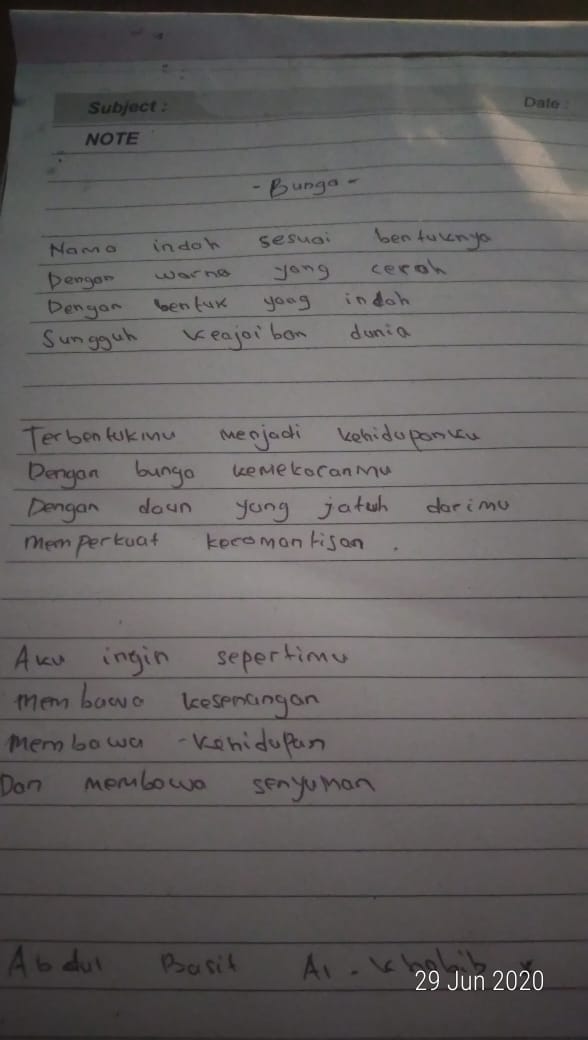 Subject :
Date :
NOTE
- Bunga -
Nama indah sesuai bentuknya
Dengan warna yang cerah
Dengan bentuk yang indah
Sungguh keajaiban dunia
Terbentukmu menjadi kehidupanku
Dengan bunga kemekaranmu
Dengan daun yang jatuh darimu
Memperkuat keromantisan .
Aku ingin sepertimu
Membawa kesenangan
Membawa -kehidupan
Dan membawa senyuman
Abdul Basit Al -
29 Jun 2020